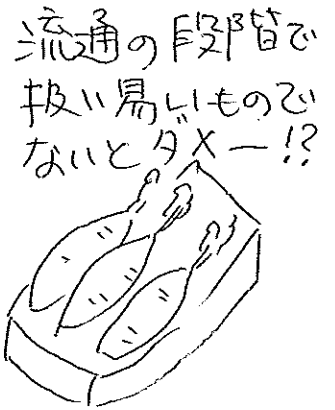 流通の段階で
扱い易いもので
ないとダメー!?